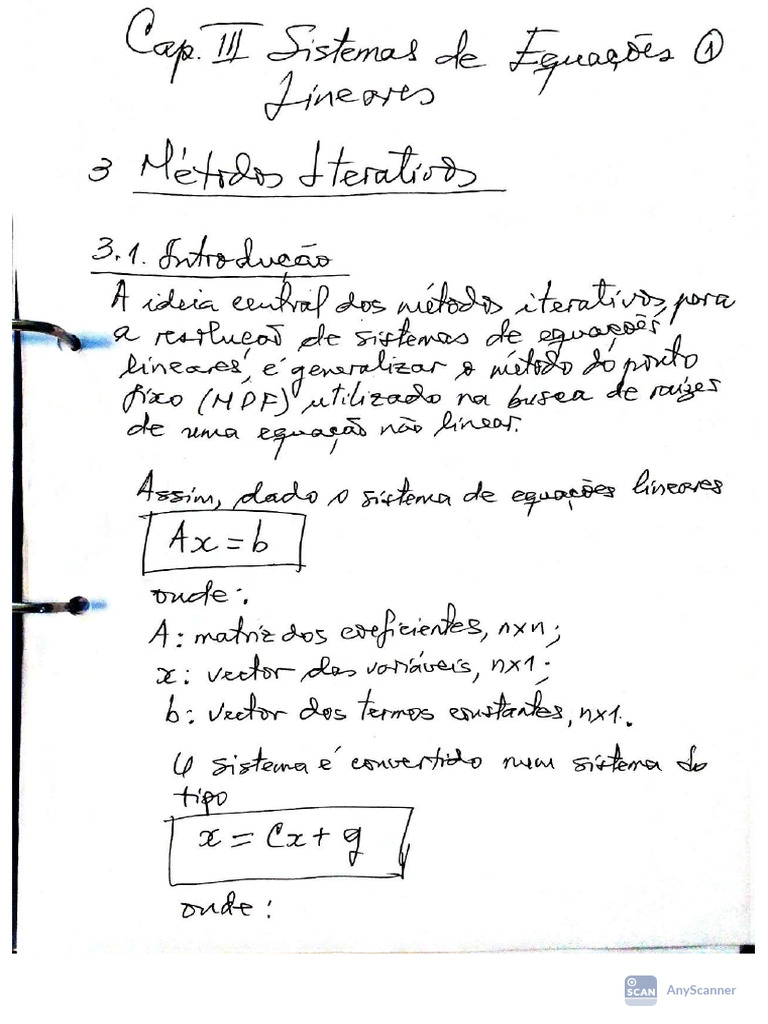 Cap. III Sistemas de Equações ①
Lineares
3 Métodos Iterativos
3.1. Introdução
A ideia central dos métodos iterativos, para
a resolução de sistemas de equações
lineares, é generalizar o método do ponto
fixo (MPF) utilizado na busca de raizes
de uma equação não linear.
Assim, dado o sistema de equações lineares
Ax = b
onde:
A: matriz dos coeficientes, n×n;
x: vector das variáveis, n×1;
b: vector dos termos constantes, n×1.
O sistema é convertido num sistema do
tipo
x = Cx + g
onde:
SCAN AnyScanner